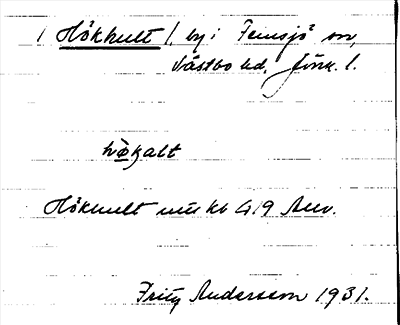 / Hökhult /. by i Femsjö sn,
Västbo hd, Jönk. l.
hø̀kalt
Hökhult
Fritz Andersson 1931.